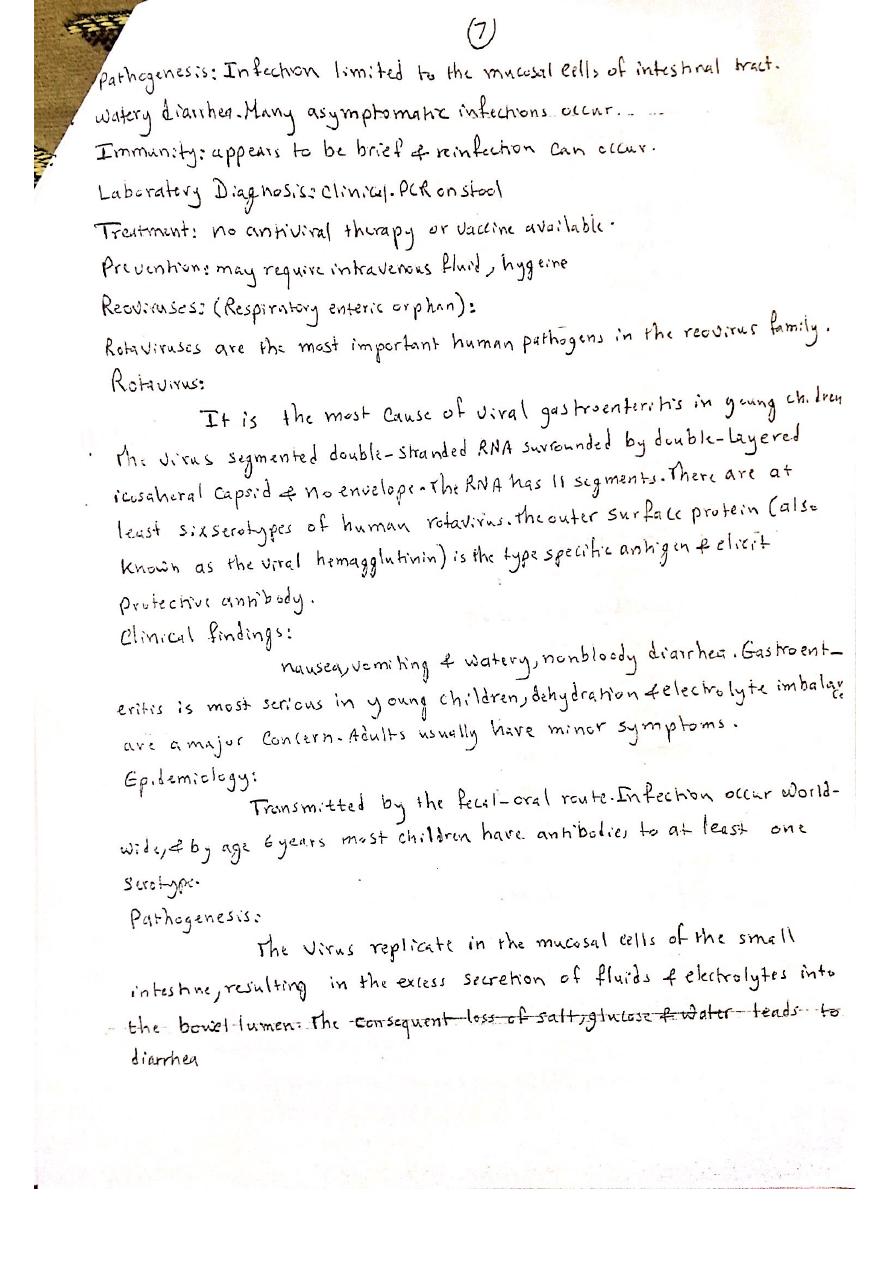 7
Pathogenesis: Infection limited to the mucosal cells of intestinal tract.
Watery diarrhea. Many asymptomatic infections occur. . ...
Immunity: appears to be brief & reinfection can occur.
Laboratory Diagnosis: clinical. PCR on stool
Treatment: no antiviral therapy or vaccine available.
Prevention: may require intravenous fluid, hygeine
Reoviruses: (Respiratory enteric orphan):
Rotaviruses are the most important human pathogens in the reovirus family.
Rotavirus:
It is the most cause of viral gastroenteritis in young children
The virus segmented double-stranded RNA surrounded by double-layered
icosaheral capsid & no envelope. The RNA has 11 segments. There are at
least six serotypes of human rotavirus. The outer surface protein (also
known as the viral hemagglutinin) is the type specific antigen & elicit
protective antibody.
Clinical findings:
nausea, vomiting & watery, nonbloody diarrhea. Gastroent-
eritis is most serious in young children, dehydration & electrolyte imbalance
are a major concern. Adults usually have minor symptoms.
Epidemiology:
Transmitted by the fecal-oral route. Infection occur world-
wide, & by age 6 years most children have antibodies to at least one
serotype.
Pathogenesis:
The virus replicate in the mucosal cells of the small
intestine, resulting in the excess secretion of fluids & electrolytes into
the bowel lumen. The consequent loss of salt, glucose & water leads to
diarrhea